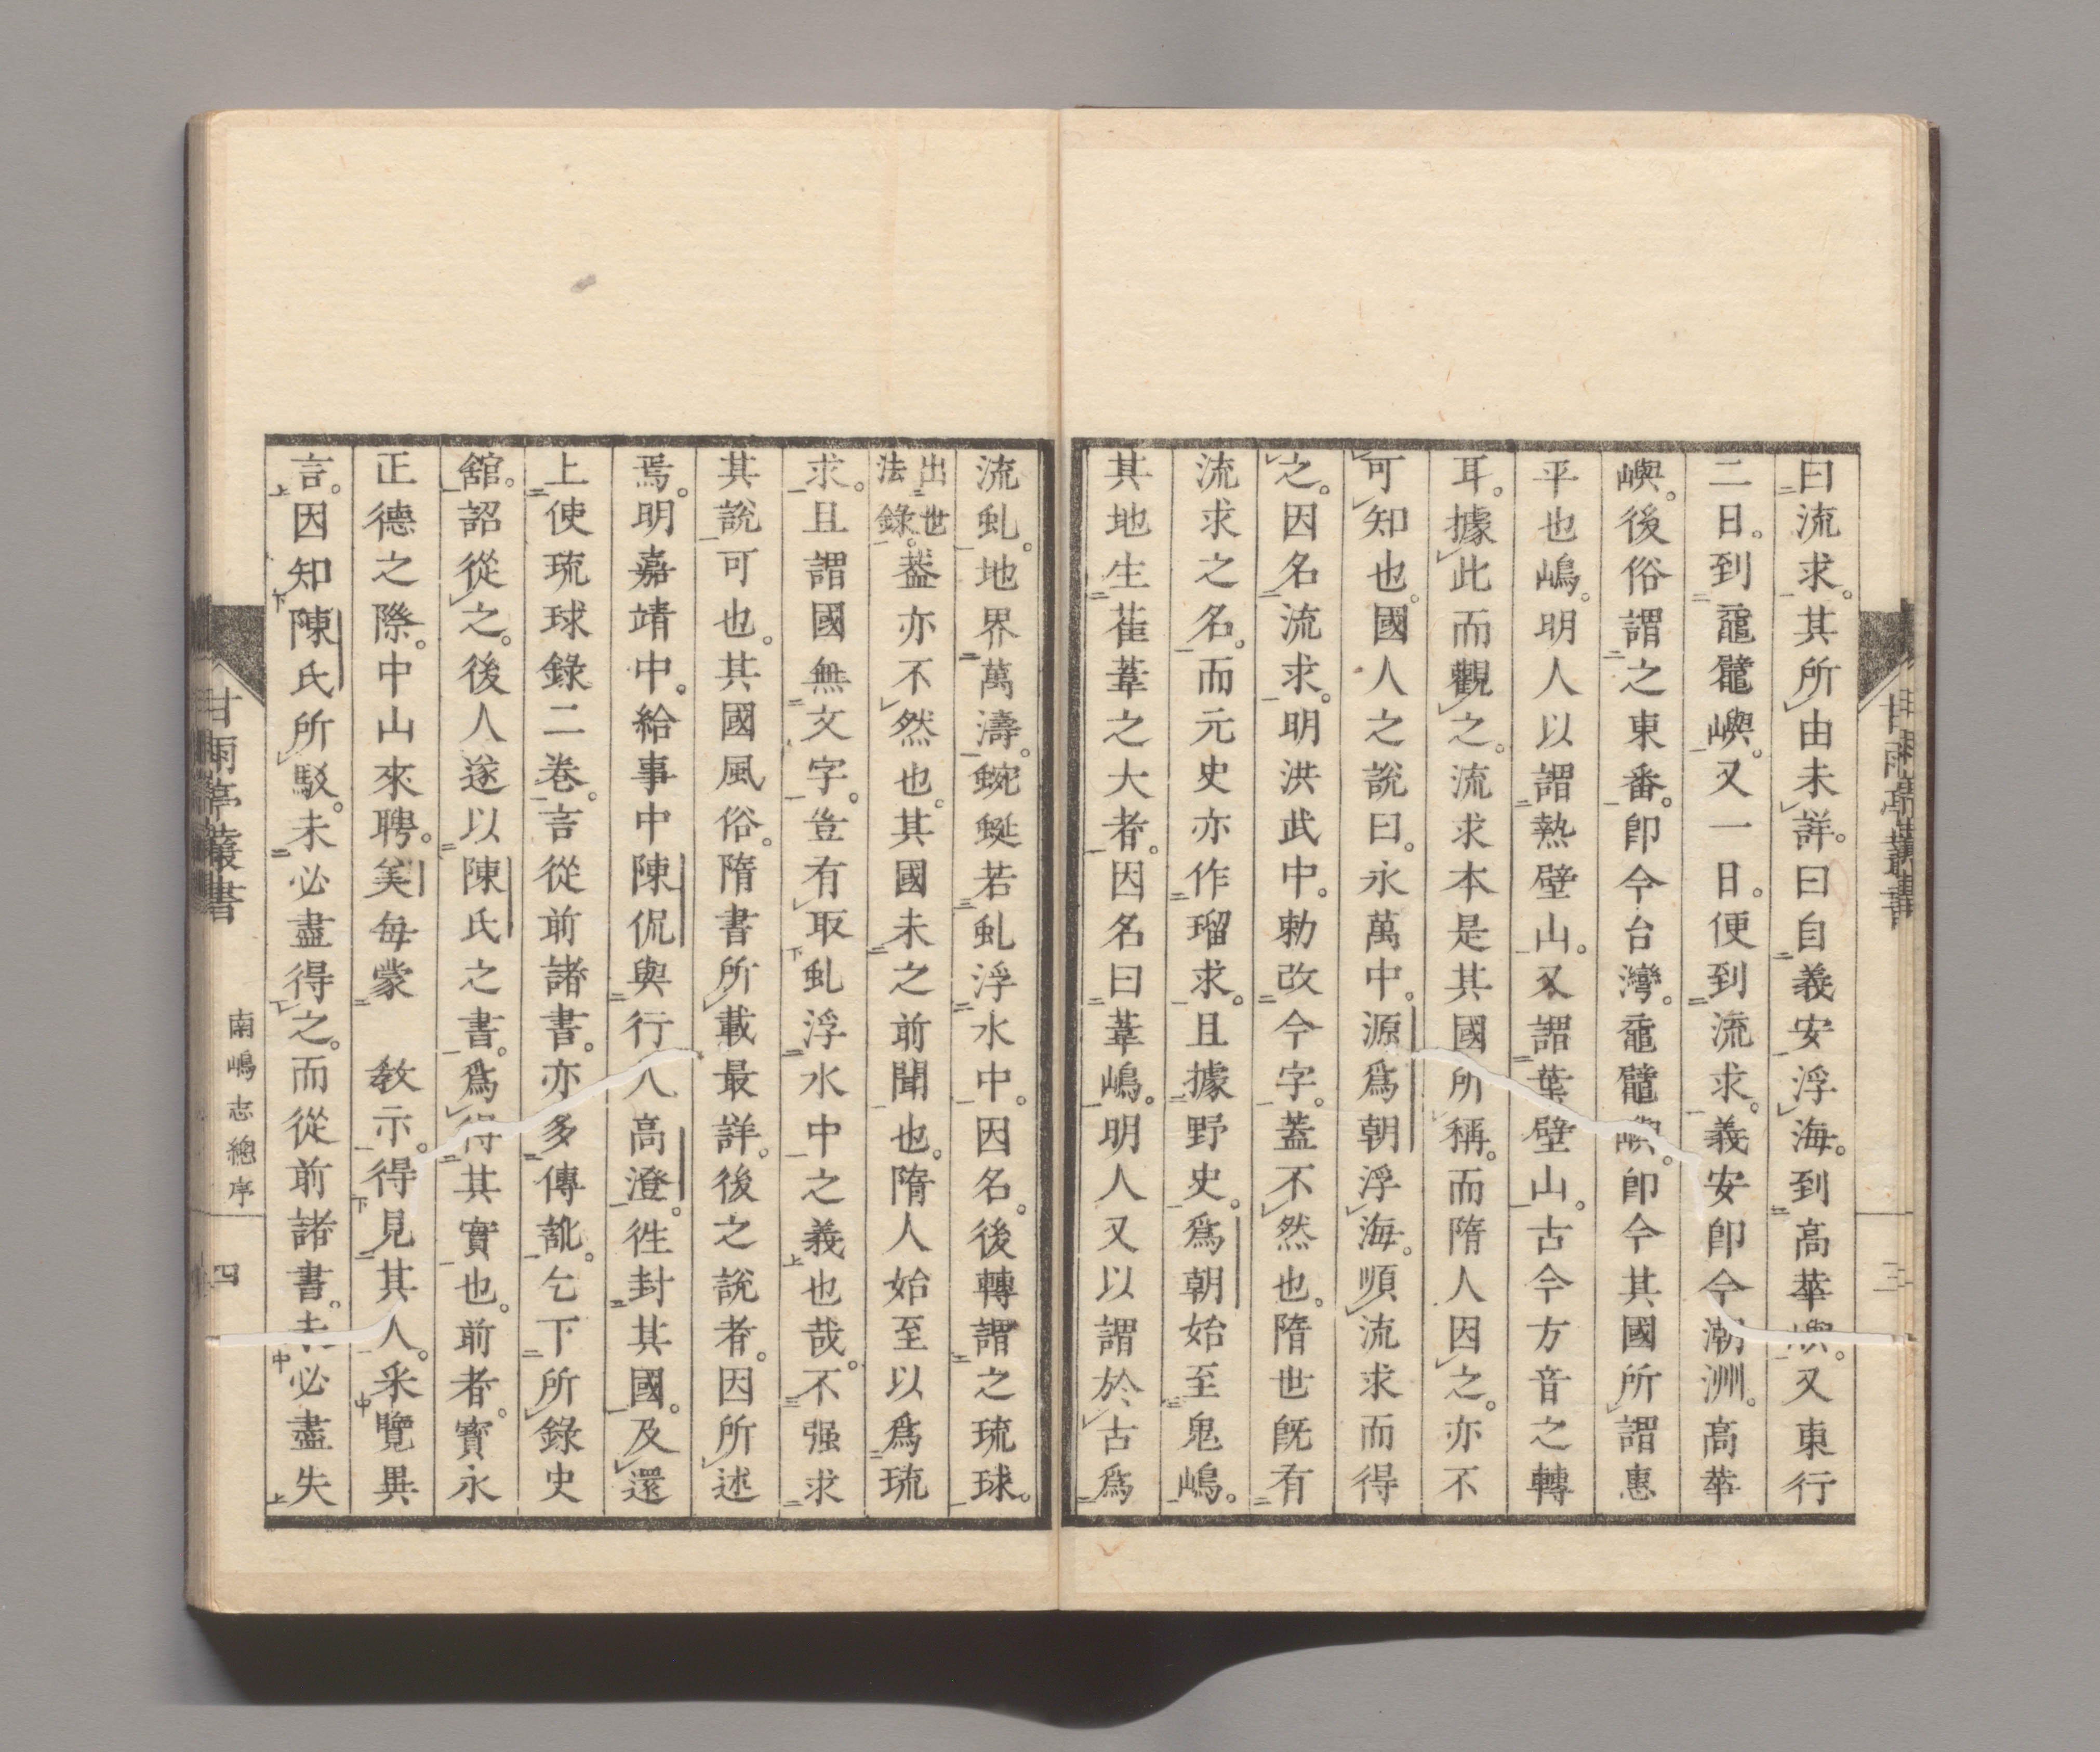 曰流求。其所由未詳。曰自義安浮海。到高華嶼。又東行
二日。到鼊嶼。又一日。便到流求。義安卽今潮洲。高華
嶼。後俗謂之東番。卽今台灣。鼊嶼。卽今其國所謂惠
平也嶋。明人以謂熱壁山。又謂葉壁山。古今方音之轉
耳。據此而觀之。流求本是其國所稱。而隋人因之。亦不
可知也。國人之說曰。永萬中。源爲朝浮海。順流求而得
之。因名流求。明洪武中。勅改今字。蓋不然也。隋世旣有
流求之名。而元史亦作瑠求。且據野史。爲朝始至鬼嶋。
其地生萑葦之大者。因名曰葦嶋。明人又以謂於古爲
流虬。地界萬濤。蜿蜒若虬浮水中。因名。後轉謂之琉球。
出世
法錄。葢亦不然也。其國未之前聞也。隋人始至以爲琉
求。且謂國無文字。豈有取虬浮水中之義也哉。不强求
其說可也。其國風俗。隋書所載最詳。後之說者。因所述
焉。明嘉靖中。給事中陳侃與行人高澄。徃封其國。及還
上使琉球錄二卷。言從前諸書。亦多傳訛。乞下所錄史
舘。詔從之。後人遂以陳氏之書。爲得其實也。前者。寳永
正德之際。中山來聘。美每蒙 敎示。得見其人。采覽異
言。因知陳氏所駁。未必盡得之。而從前諸書。未必盡失
甘雨亭叢書
南嶋志總序
四
甘雨亭叢書
三